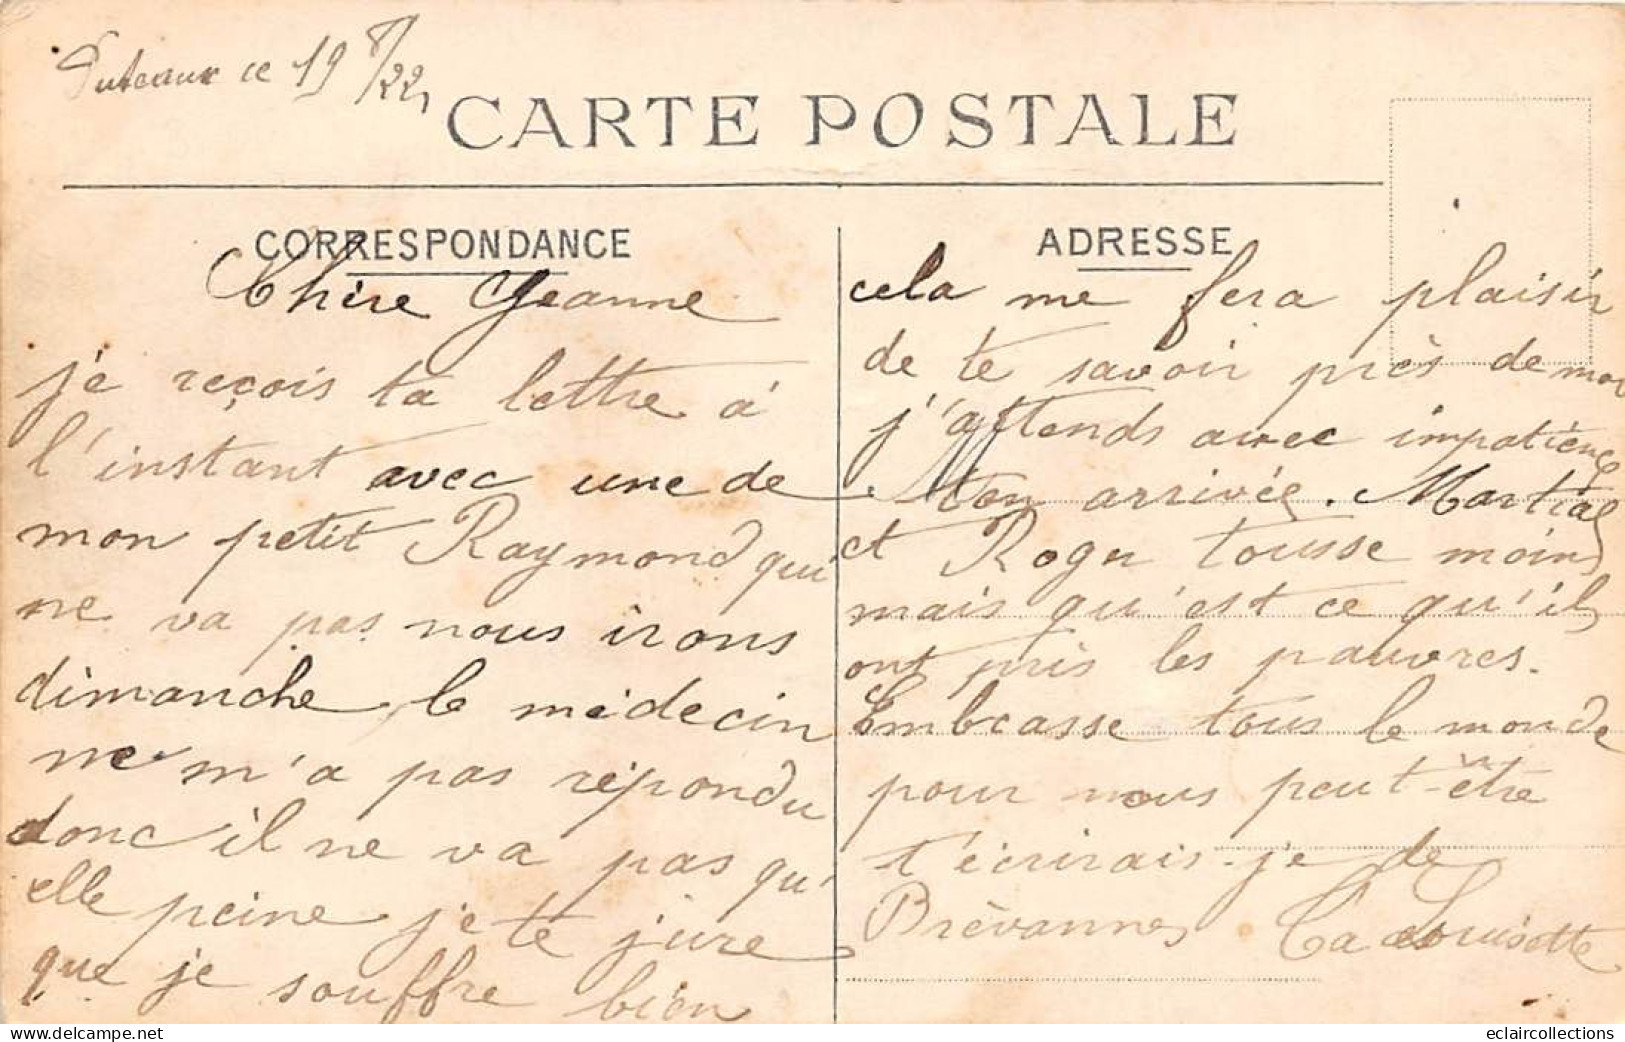 Puteaux ce 19 8/22
CARTE POSTALE
CORRESPONDANCE
Chère Jeanne
je reçois ta lettre à
l'instant avec une de
mon petit Raymond qui
ne va pas nous irons
dimanche le médecin
ne m'a pas répondu
donc il ne va pas qu'
elle peine je te jure
que je souffre bien
ADRESSE
cela me fera plaisir
de te savoir près de moi
j'attends avec impatience
ton arrivée. Martial
et Roger tousse moins
mais qu'est ce qu'ils
ont pris les pauvres.
Embrasse tous le monde
pour nous peut-être
t'écrirais-je de
Brévannes Ta Louisette
eclaircollections